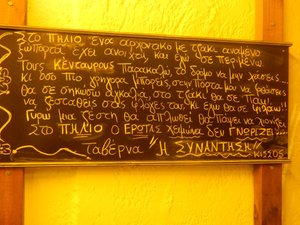 Στο ΠΗΛΙΟ ένα αρχοντικό με τζάκι αναμένο
Εξώπορτα έχει ανοιχτή και εγώ σε περιμένω
Τους ΚΕΝταυρους παρακαλώ, το δρόμο να μην χάσεις...
Κι όσο πιο γρήγορα μπορείς στην πόρτα μου να φθάσεις...
θα σε σηκώσω αγκαλιά, στο τζάκι θα σε πάω!
να ζεσταθείς στις φλόγες του. Κι εγώ θα σε φιλάω!!
Γύρω μια ζέστη θα απλωθεί θα πάψει να χιονίζει
Στο ΠΗΛΙΟ ο ΕΡΩΤΑΣ χειμώνα ΔΕΝ ΓΝΩΡΙΖΕΙ...
Ταβέρνα "Η ΣΥΝΑΝΤΗΣΗ"
ΚΙΣΣΟΣ